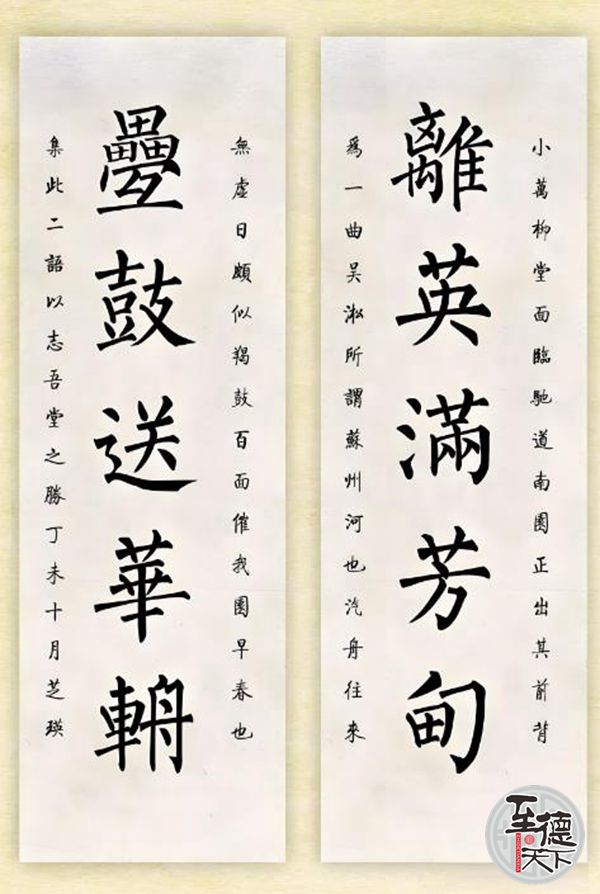 小萬柳堂面臨馳道南園正出其前背
離英滿芳甸
爲一曲吳淞所謂蘇州河也汽舟往來
無虛日頗似羯鼓百面催我園早春也
疊鼓送華輈
集此二語以志吾堂之勝丁未十月芝瑛
至德天下